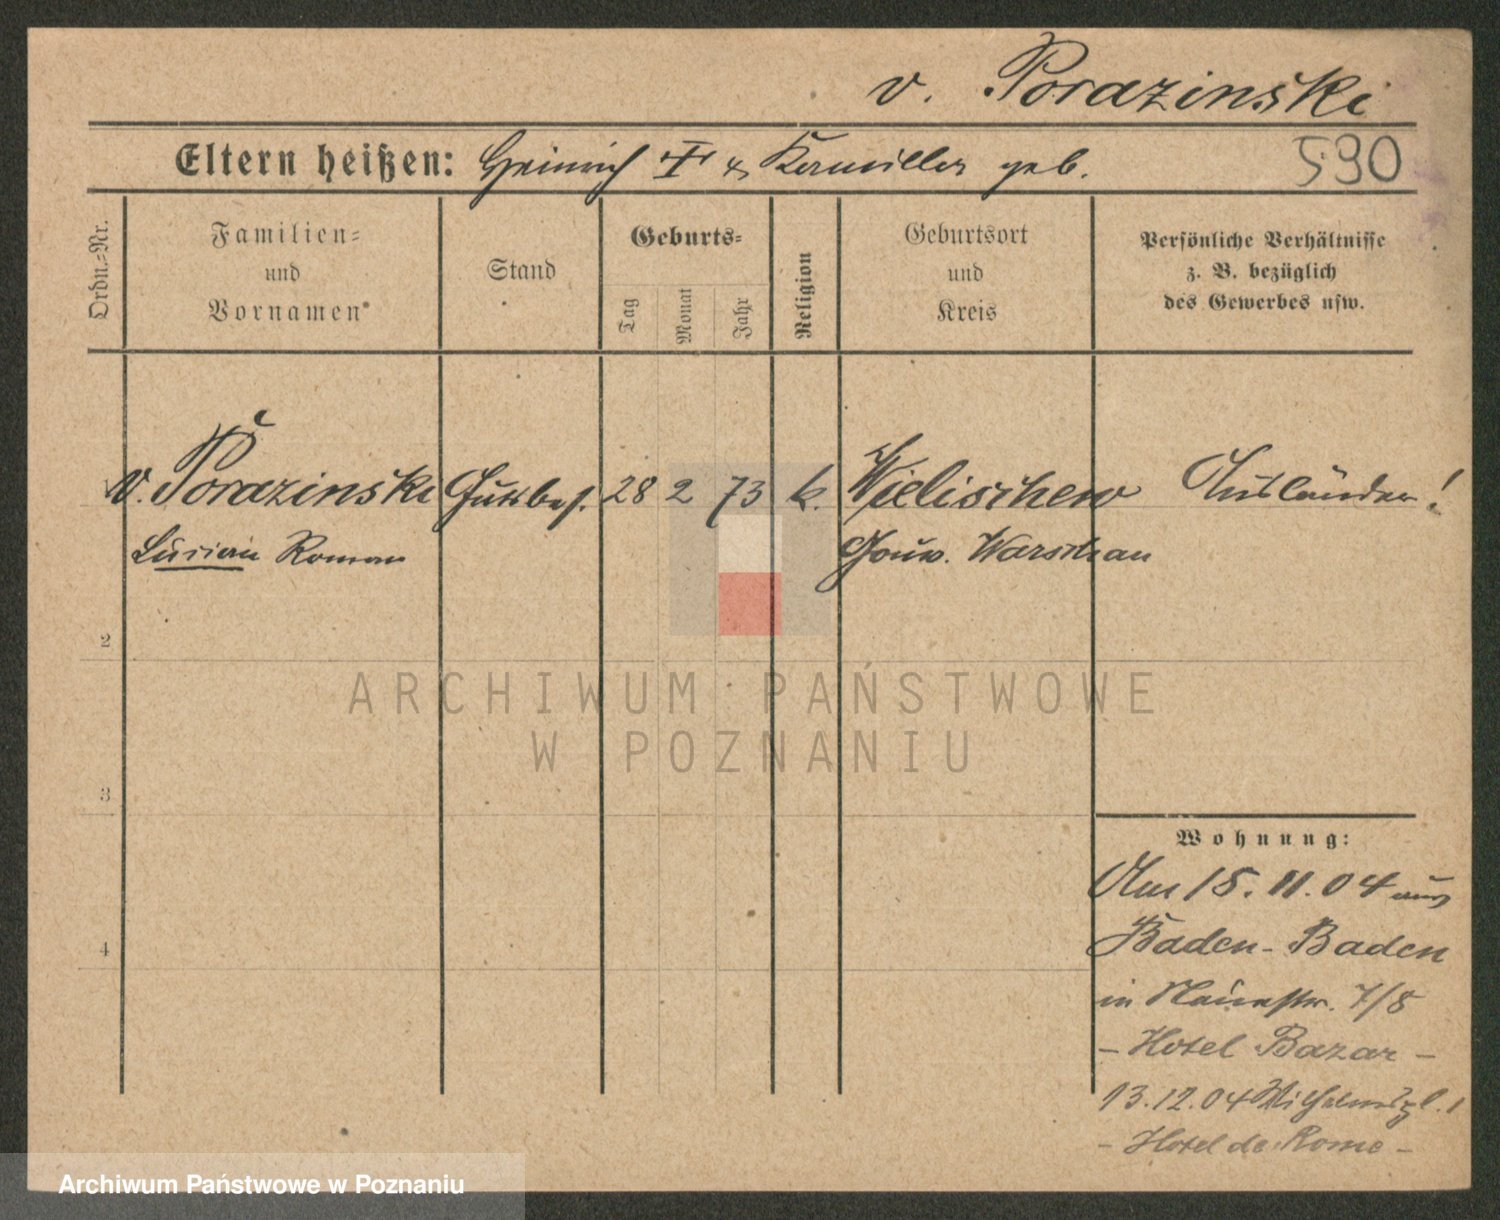 v. Porazinski
Eltern heißen: Heinrich & geb.
590
Ordn.-Nr.
Familien=
und
Vornamen
Stand
Geburts=
Tag
Monat
Jahr
Religion
Geburtsort
und
Kreis
Persönliche Verhältnisse
z. B. bezüglich
des Gewerbes usw.
v. Porazinski Gutsbes. 28 2 73 k. Wielischew Ausländer!
Lucian Roman Gouv. Warschau
2
ARCHIWUM PAŃSTWOWE
W POZNANIU
3
Wohnung:
Am 15.11.04 aus
4
Baden-Baden
in 7/8
- Hotel Bazar -
13.12.04 Wilhelmspl. 1
- Hotel de Rome -
Archiwum Państwowe w Poznaniu